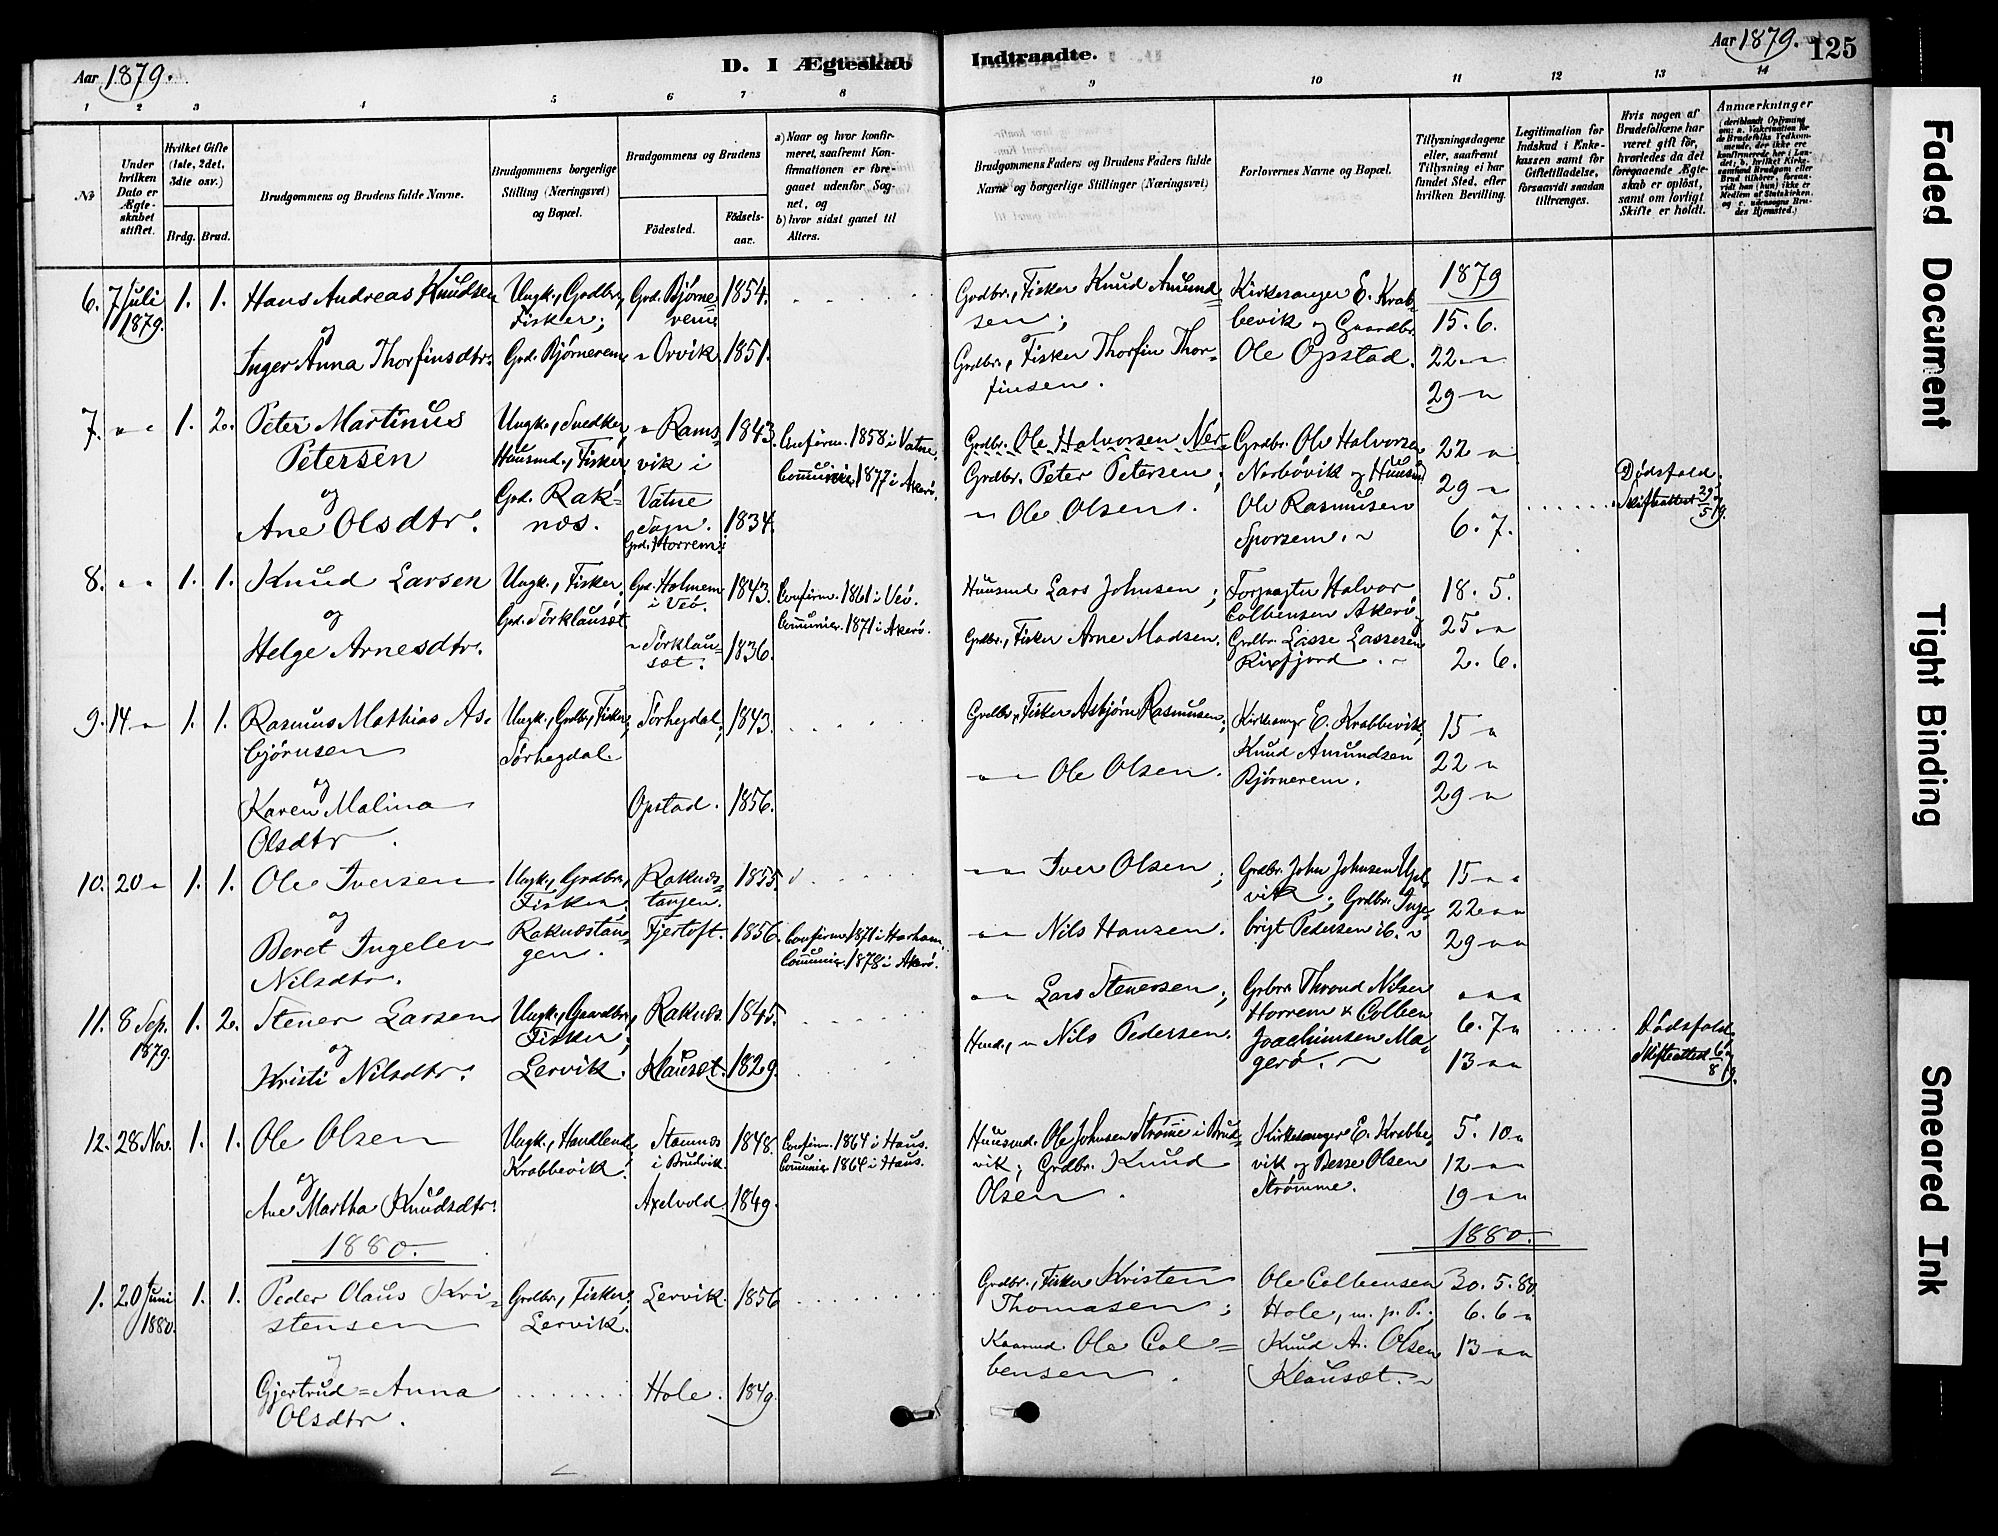 Aar 1879.
D. I Ægteskab Indtraadte.
Aar 1879. 125
1 2 3 4 5 6 7 8 9 10 11 12 13 14
No
Under hvilken Dato er Ægteskabet stiftet.
Hvilket Gifte (1ste, 2det, 3die osv.)
Brdg. Brud.
Brudgommens og Brudens fulde Navne.
Brudgommens borgerlige Stilling (Næringsvei) og Bopæl.
Brudgommens og Brudens
Födested.
Födselsaar.
a) Naar og hvor konfirmeret, saafremt Konfirmationen er foregaaet udenfor Sognet, og
b) hvor sidst gaaet til Alters.
Brudgommens Faders og Brudens Faders fulde Navne og borgerlige Stillinger (Næringsvei)
Forlovernes Navne og Bopæl.
Tillysningsdagene eller, saafremt Tillysning ei har fundet Sted, efter hvilken Bevilling.
Legitimation for Indskud i Enkekassen samt for Giftetilladelse, forsaavidt saadan tiltrænges.
Hvis nogen af Brudefolkene har været gift för, hvorledes da det foregaaende Ægteskab er oplöst, samt om lovligt Skifte er holdt.
Anmærkninger (deriblandt Oplysning om: a. Vakcination for de Brudefolks Vedkommende, der ikke ere konfirmerede her i Landet; b. hvilket Kirkesamfund Brudgom eller Brud tilhörer, forsaavidt han (hun) ikke er Medlem af Statskirken, og c. udensogns Brudes Hjemsted.)
6. 7 Juli 1879. 1. 1. Hans Andreas Knudsen
og
Inger Anna Thorfinsdtr.
Ungk., Grdbr., Fisker;
Grd. Bjørnerem
Grd. Bjørnerem 1854.
" Orvik 1851.
Grdbr., Fisker Knud Amundsen;
Grdbr., Fisker Thorfin Thorfinsen.
Kirkesanger E. Krabbevik og Gaardbr.
Ole Opstad.
1879
15. 6.
22 "
29 "
7. " " 1. 2. Peter Martinus
Petersen
og
Ane Olsdtr.
Ungk., Snedker,
Huusmd., Fisker
Grd. Raknæs.
" Ramsvik i Vatne Sogn. 1843.
Grd. Horrem. 1834.
Confirm. 1858 i Vatne.
Communic. 1877 i Akerø.
Grdbr. Ole Halvorsen Ner
Grdbr. Peter Petersen;
" Ole Olsen.
Grdbr. Ole Halvorsen
Nerbøvik og Huusmd
Ole Rasmusen
Sporsem.
22 "
29 "
6. 7.
Dødsfald.
Skifteattest 29/5 79.
8. " " 1. 1. Knud Larsen
og
Helge Arnesdtr.
Ungk., Fisker,
Grd. Sørklausæt
Grd. Holmem i Veø. 1843.
" Sørklausæt. 1836.
Confirm. 1861 i Veø.
Communic. 1871 i Akerø.
Huusmd Lars Johnsen;
Grdbr., Fisker Arne Madsen.
Forpagter Halvor
Colbensen Akerø
Grdbr. Lasse Lassesen
Rixfjord.
18. 5.
25. "
2. 6.
9. 14 " 1. 1. Rasmus Mathias Asbjørnsen
og
Karen Malina
Olsdtr.
Ungk., Grdbr., Fisker;
Sørhegdal.
Sørhegdal, 1843.
Opstad. 1856.
Grdbr., Fisker Asbjørn Rasmusen;
" " Ole Olsen.
Kirkesangr E. Krabbevik;
Knud Amundsen
Bjørnerem.
15 "
22 "
29 "
10. 20 " 1. 1. Ole Iversen
og
Beret Ingeleu
Nilsdtr.
Ungk., Grdbr.,
Fisker.
Raknæstangen.
Raknæstangen. 1855.
Fjertoft. 1856.
Confirm. 1871 i Harham.
Communic. 1878 i Akerø.
" " Iver Olsen;
" " Nils Hansen.
Grdbr. John Johnsen
vik; Grdbr. Ingebrigt Pedersen ib.
15 " "
22 " "
29 " "
11. 8 Sep. 1879. 1. 2. Stener Larsen
og
Kristi Nilsdtr.
Ungk., Gaardbr.,
Fisker;
Lervik.
Raknæs. 1845.
Klausæt. 1829.
" " Lars Stenersen;
" Nils Pedersen.
Grbr. Thrond Nilsen
Horrem & Colben
Joachimsen Magerø.
" " "
6. 7 "
13 " "
Dødsfald.
Skifteattest 6/8 79.
12. 28 Nov. 1. 1. Ole Olsen
og
Ane Martha Knudsdtr.
Ungk., Handlend.
Krabbevik.
Stamnæs i Brudvik. 1848.
Axelvold. 1849.
Confirm. 1864 i Haus.
Communic. 1864 i Haus.
Huusmd. Ole Johnsen Strømme i Brudvik; Grdbr. Knud
Olsen.
Kirkesanger E. Krabbevik og Besse Olsen
Strømme.
5. 10 "
12 " "
19 " "
1880.
1880.
1. 20 Juni 1880. 1. 1. Peder Olaus Kristensen
og
Gjertrud=Anna
Olsdtr.
Grdbr., Fisker,
Lervik.
Lervik. 1856
Hole. 1849.
Grdbr., Fisker Kristen
Thomasen;
Kaarmd. Ole Colbensen.
Ole Colbensen
Hole, m. p. P.;
Knud A. Olsen
Klausæt.
30. 5. 80.
6. 6 "
13 " "
Faded Document
Tight Binding
Smeared Ink